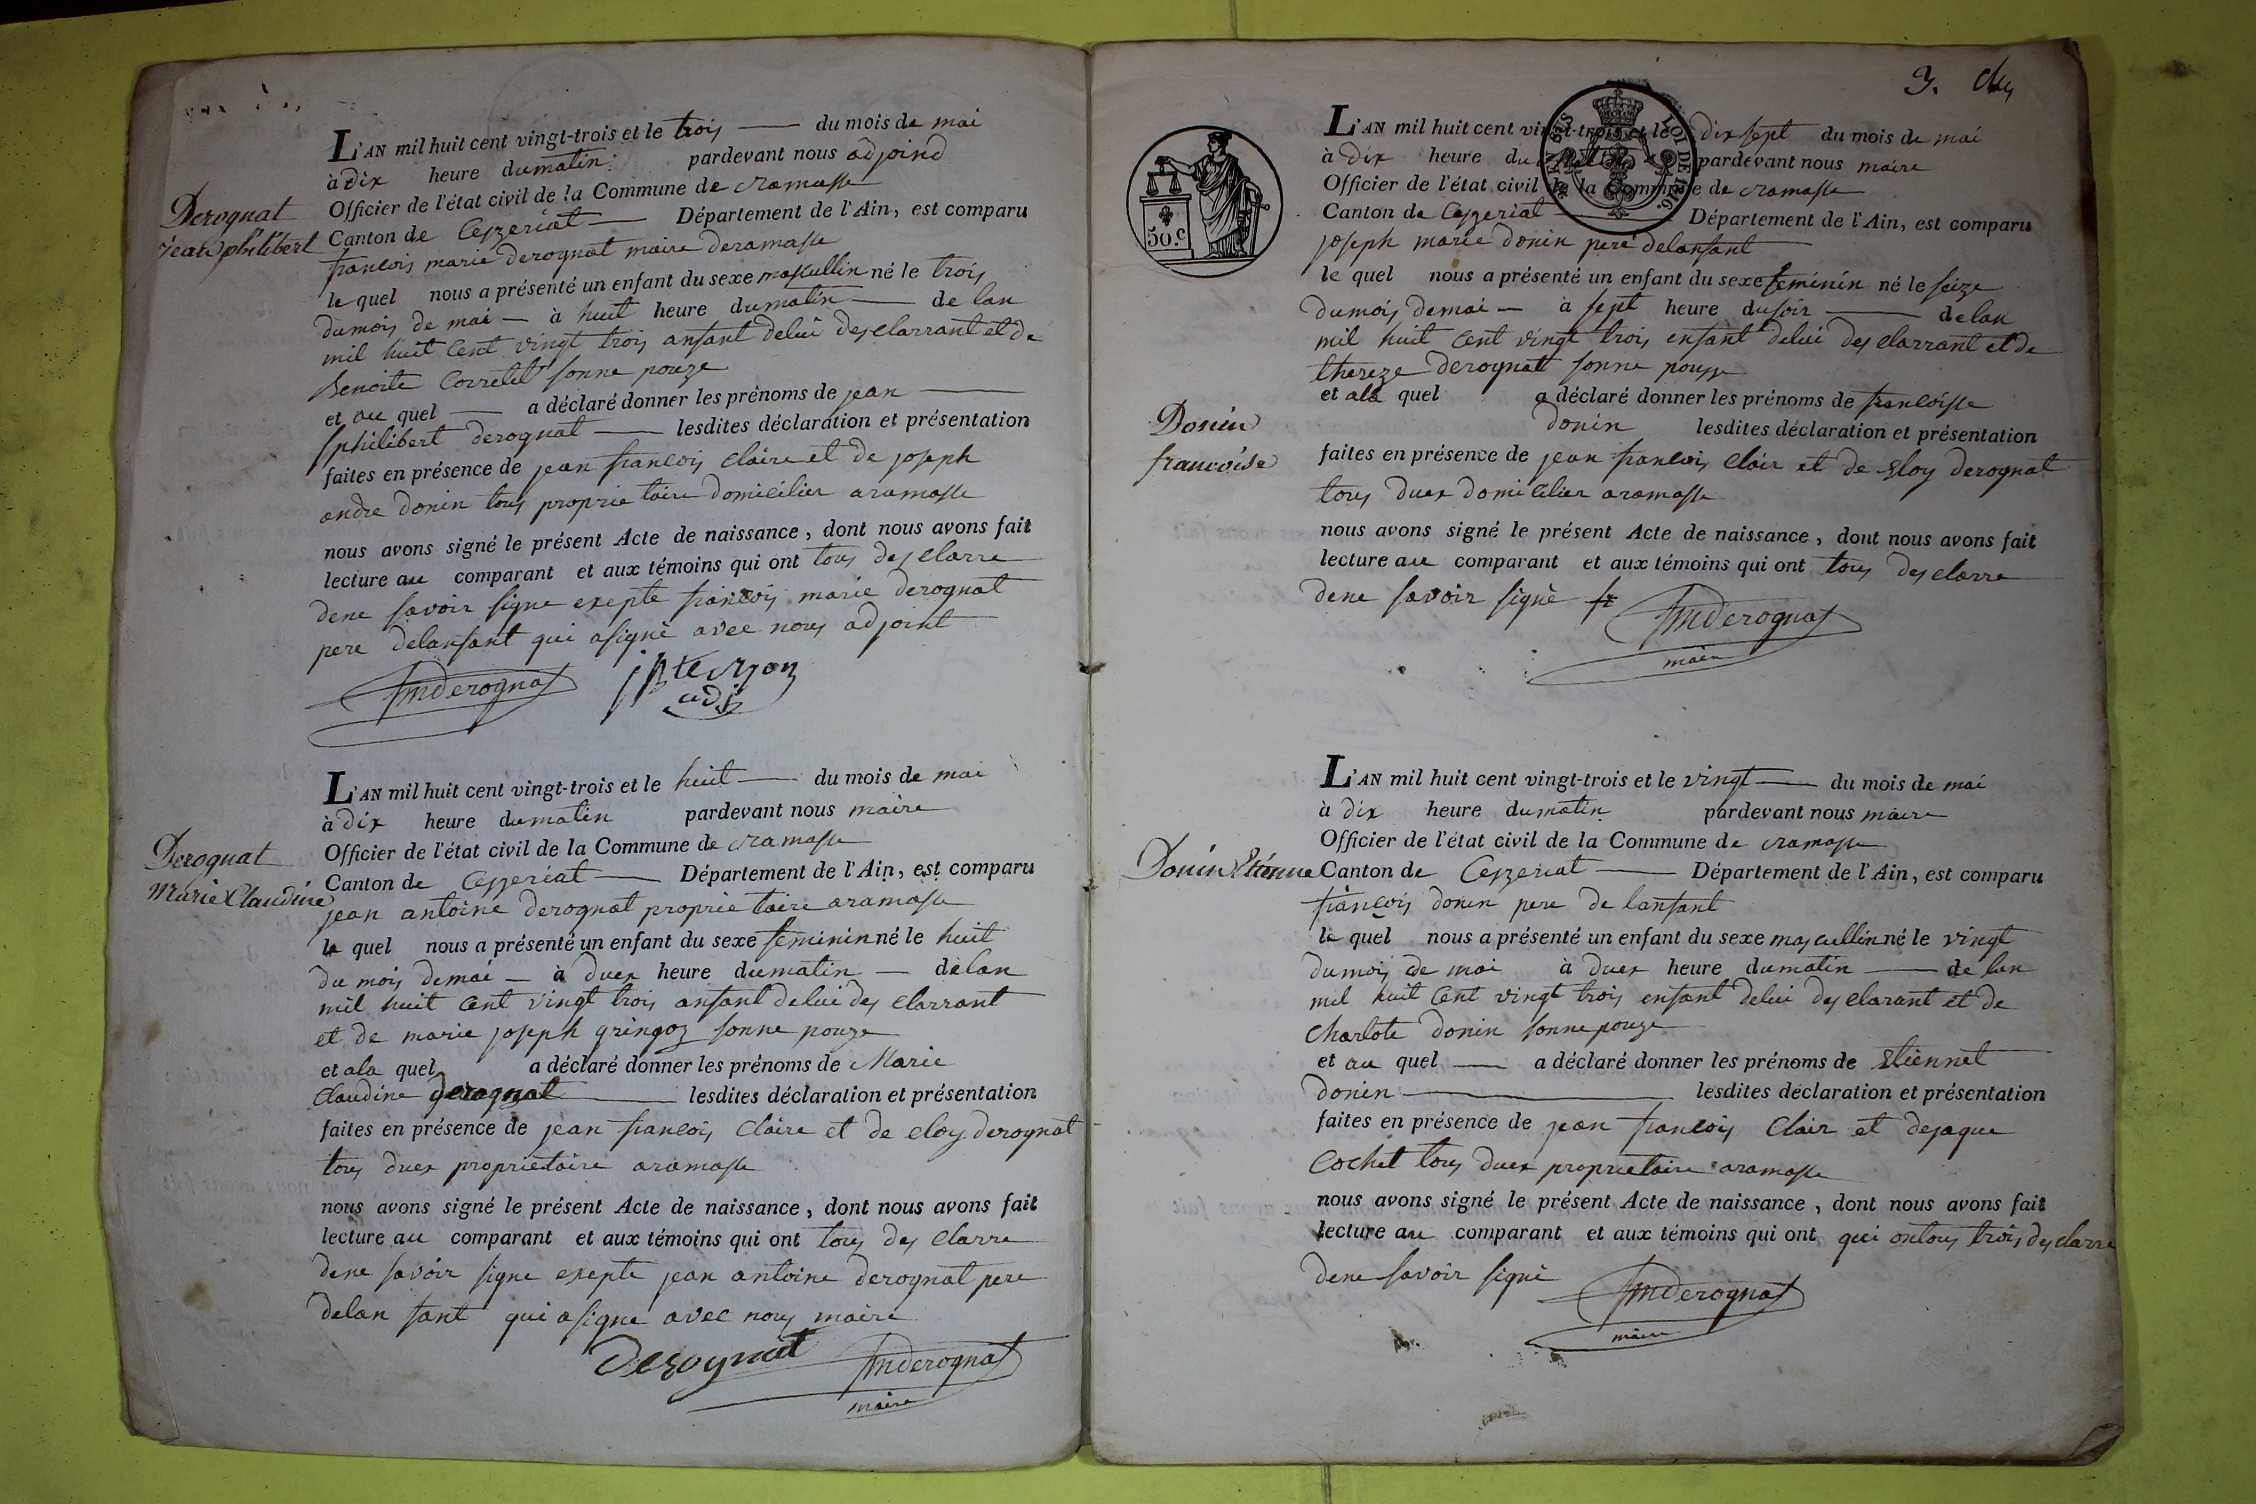 Derognat
jean philibert
L'AN mil huit cent vingt-trois et le trois du mois de mai
à dix heure du matin pardevant nous adjoind
Officier de l'état civil de la Commune de ramasse
Canton de Ceyzeriat Département de l'Ain, est comparu
francois marie derognat maire deramasse
le quel nous a présenté un enfant du sexe mascullin né le trois
du mois de mai à huit heure du matin de lan
mil huit cent vingt trois anfant delui desclarrant et de
Benoite Corretel sonne pouze
et au quel a déclaré donner les prénoms de jean
philibert derognat lesdites déclaration et présentation
faites en présence de jean francois claire et de joseph
andre donin tous proprietaire domicilier aramasse
nous avons signé le présent Acte de naissance, dont nous avons fait
lecture au comparant et aux témoins qui ont tous desclarre
dene savoir signe exepte francois marie derognat
pere delanfant qui asigné avec nous adjoint
fmderognat
adj
Derognat
marie Claudine
L'AN mil huit cent vingt-trois et le huit du mois de mai
à dix heure du matin pardevant nous maire
Officier de l'état civil de la Commune de ramasse
Canton de Ceyzeriat Département de l'Ain, est comparu
jean antoine derognat proprietaire aramasse
le quel nous a présenté un enfant du sexe feminin né le huit
du mois demai à duex heure du matin de lan
mil huit cent vingt trois anfant delui desclarrant
et de marie joseph gringoz sonne pouze
et ala quel a déclaré donner les prénoms de Marie
Claudine derognat lesdites déclaration et présentation
faites en présence de jean francois Claire et de eloy derognat
tous duex proprietaire aramasse
nous avons signé le présent Acte de naissance, dont nous avons fait
lecture au comparant et aux témoins qui ont tous desclarre
dene savoir signe exepte jean antoine derognat pere
delan fant qui asigne avec nous maire
Derognat fmderognat
maire
3.
50.c
LOI DE 1816.
L'AN mil huit cent vingt-trois et le dix sept du mois de mai
à dix heure du matin pardevant nous maire
Officier de l'état civil de la Commune de ramasse
Canton de Ceyzeriat Département de l'Ain, est comparu
joseph marie donin pere delanfant
le quel nous a présenté un enfant du sexe feminin né le seize
dumois demai à sept heure dusoir delan
mil huit cent vingt trois enfant delui desclarrant et de
thereze derognat sonne pouze
et ala quel a déclaré donner les prénoms de francoisse
donin lesdites déclaration et présentation
Donin
francoise
faites en présence de jean francois Clair et de eloy derognat
tous duex domicilier aramasse
nous avons signé le présent Acte de naissance, dont nous avons fait
lecture au comparant et aux témoins qui ont tous desclarre
dene savoir signé
fmderognat
maire
L'AN mil huit cent vingt-trois et le vingt du mois de mai
à dix heure dumatin pardevant nous maire
Officier de l'état civil de la Commune de ramasse
Donin Etienne Canton de Ceyzeriat Département de l'Ain, est comparu
françois donin pere de lanfant
le quel nous a présenté un enfant du sexe mascullin né le vingt
dumois de mai à duex heure dumatin de lan
mil huit cent vingt trois enfant delui desclarant et de
Charlote donin sonne pouze
et au quel a déclaré donner les prénoms de Etiennet
donin lesdites déclaration et présentation
faites en présence de jean francois Clair et dejaque
Cochet tous duex proprietaire aramasse
nous avons signé le présent Acte de naissance, dont nous avons fait
lecture au comparant et aux témoins qui ont qui ontous trois desclarre
dene savoir signé
fmderognat
maire